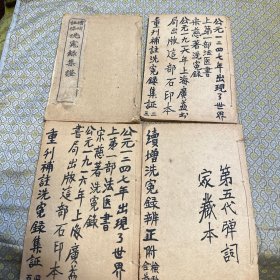 洗冤錄集證
公元一二四七年出現了世界
上第一部法医書
宋慈著洗冤錄
公元一九一六年上海廣益書
局出版這部石印本
重刋補註洗冤錄集証
公元一二四七年出現了世界
上第一部法医書
宋慈著洗冤錄
公元一九一六年上海廣益
書局出版這部石印本
重刋補註洗冤錄集証
第五代禅詞
家藏本
續增洗冤錄辨正附